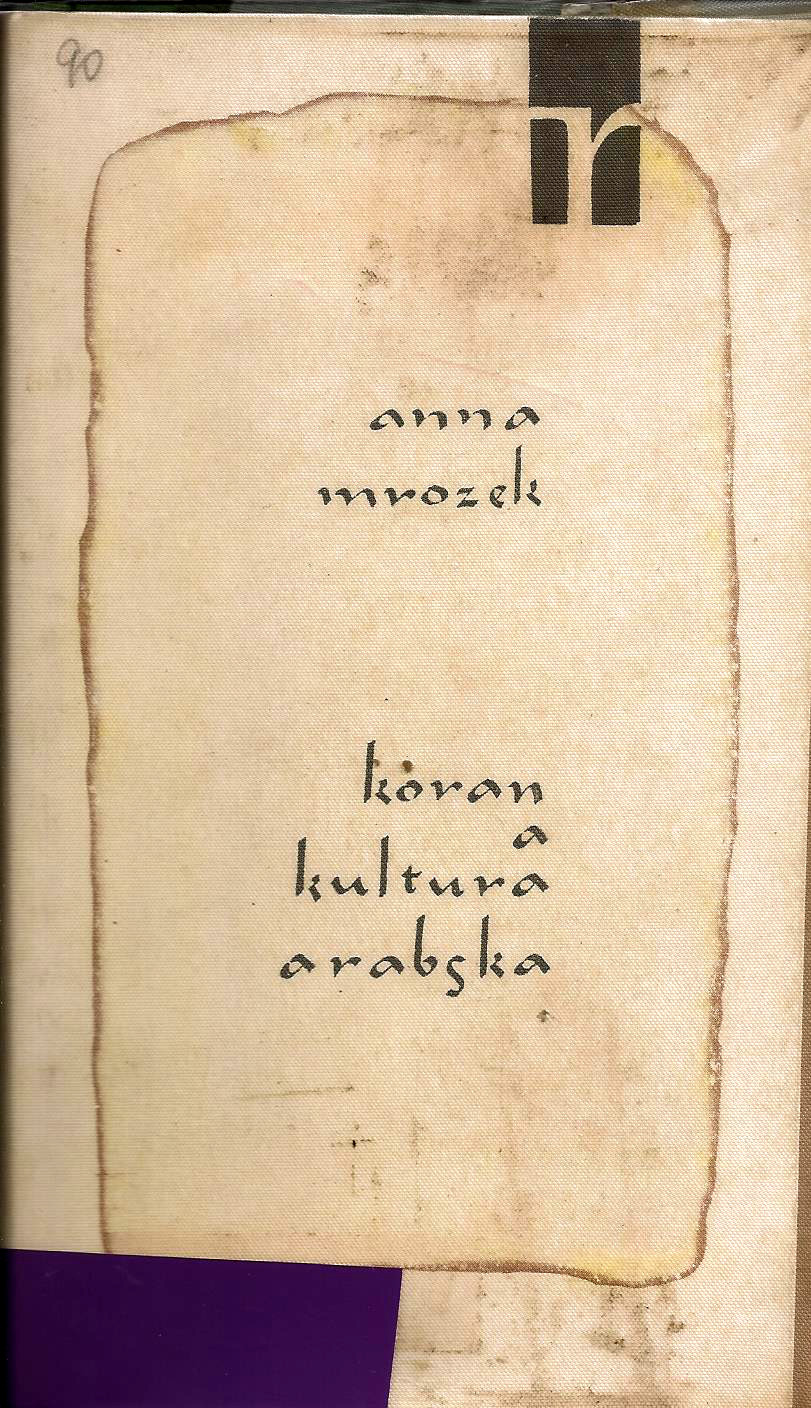 90
r
anna
mrozek
koran
a
kultura
arabska